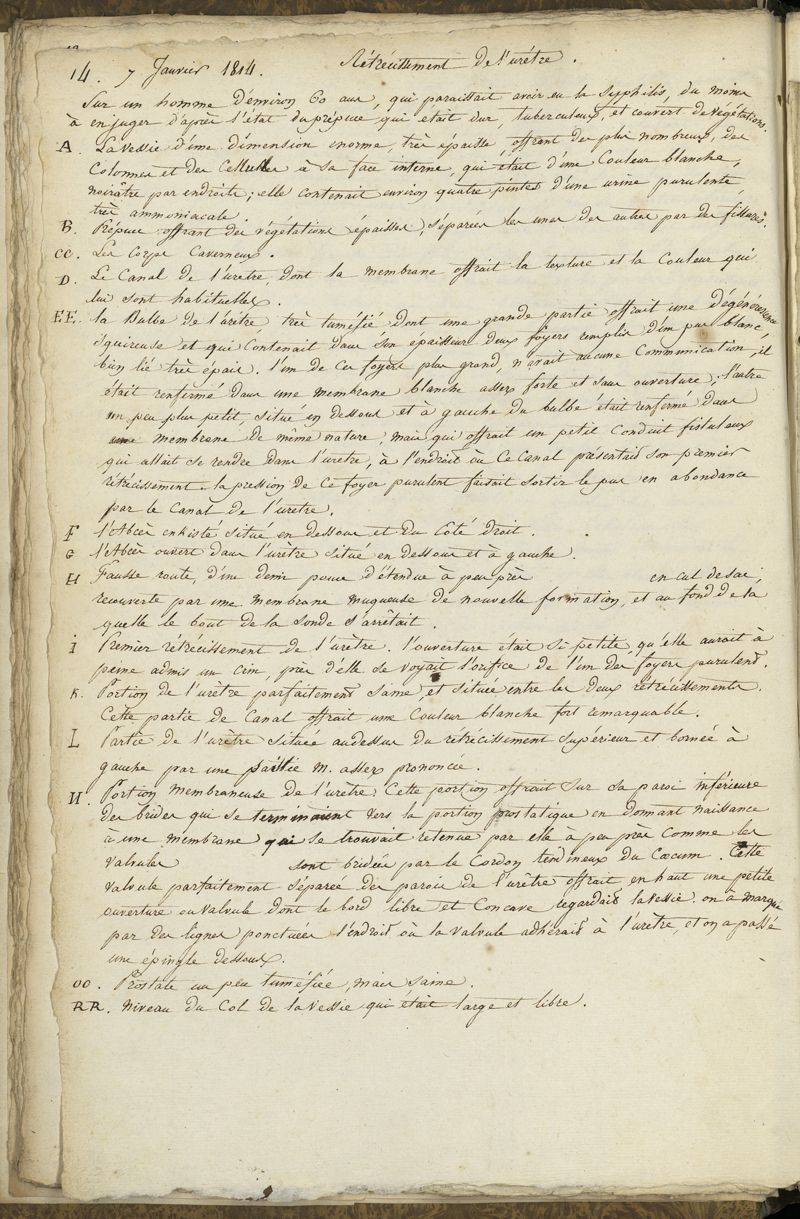 14. 7 Janvier 1814. Rétrécissement de l'urètre.
Sur un homme d'environ 60 ans, qui paraissait avoir eu la Syphilis, du moins
à en juger d'après l'état du prépuce qui était dur, tuberculeux, et couvert de végétations.
A. La vessie d'une dimension énorme, très épaisse, offrant des plis nombreux, des
Colonnes et des Cellules à sa face interne, qui était d'une Couleur blanche,
noirâtre par endroits; elle contenait environ quatre pintes d'une urine purulente,
très ammoniacale.
B. Prépuce offrant des végétations épaisses, séparées les unes des autres par des fissures.
CC. Les Corps Caverneux.
D. Le Canal de l'urètre, dont la membrane offrait la texture et la Couleur qui
lui sont habituelles.
EE. la Bulbe de l'urètre, très tuméfié dont une grande partie offrait une dégénérescence
squireuse et qui Contenait dans son épaisseur deux foyers remplis d'un pus blanc,
bien lié très épais. l'un de ces foyers plus grand, n'avait aucune Communication, il
était renfermé dans une membrane blanche assez forte et sans ouverture; l'autre
un peu plus petit, situé en dessous et à gauche du bulbe était renfermé dans
une membrane de même nature, mais qui offrait un petit Conduit fistuleux
qui allait se rendre dans l'urètre, à l'endroit où Ce Canal présentait son premier
rétrécissement. la pression de Ce foyer purulent faisait sortir le pus en abondance
par le Canal de l'urètre.
F l'Abcès enkisté situé en dessous et du Côté droit.
G l'Abcès ouvert dans l'urètre situé en dessous et à gauche.
H Fausse route, d'une demi pouce d'étendue à peu près en cul de sac,
recouverte par une membrane muqueuse de nouvelle formation, et au fond de la
quelle le bout de la Sonde s'arrêtait.
I Premier rétrécissement de l'urètre. l'ouverture était si petite, qu'elle aurait à
peine admis un Crin, près d'elle se voyait l'orifice de l'un des foyers purulents.
K. Portion de l'urètre parfaitement saine, et située entre les deux rétrécissements.
Cette partie de Canal offrait une Couleur blanche fort remarquable.
L Partie de l'urètre située au dessus du rétrécissement supérieur et bornée à
gauche par une saillie m. assez prononcée.
N. Portion membraneuse de l'urètre. Cette portion offrait sur sa paroi inférieure
des brides qui se terminaient vers la portion prostatique en donnant naissance
à une membrane qui se trouvait retenue par elle à peu près comme les
Valvules sont bridées par le Cordon tendineux du Cœcum. Cette
valvule parfaitement séparée des parois de l'urètre offrait en haut une petite
ouverture ou valvule dont le bord libre et Concave regardait la vessie. on a marqué
par des lignes ponctuées l'endroit où la valvule adhérait à l'urètre, et on a passé
une épingle dessous.
oo. Prostate un peu tuméfiée, mais saine.
RR. niveau du Col de la vessie qui était large et libre.